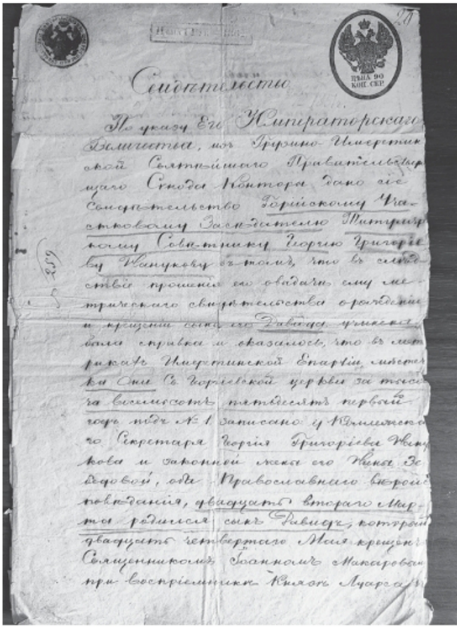 ЦѢНА 90
КОП. СЕР.
Свидѣтельство
По указу Его Императорскаго
Величества, изъ Грузино-Имеретин
ской Святѣйшаго Правительствую
щаго Синода Конторы дано сіе
свидѣтельство Горійскому Уча-
стковому Засѣдателю Титуляр
ному Совѣтнику Георгію Григорье
ву въ томъ, что въ слѣд
ствіе прошенія его о выдачѣ ему ме
трическаго свидѣтельства о рожденіи
и крещеніи сына его Давида учинена
была справка и оказалось, что въ мет
рикахъ Имеретинской Епархіи мѣстеч
ка Они Георгіевской церкви за тыся
ча восемьсотъ пятьдесятъ первый
годъ подъ № 1 записано: у
го Секретаря Георгія Григорьева
и законной жены его
бедовой, оба Православнаго вѣроис
повѣданія, двадцать втораго Мар
та родился сынъ Давидъ, который
двадцать четвертаго Мая крещенъ
Священникомъ Іоанномъ
при воспріемникѣ Князѣ
№ 259